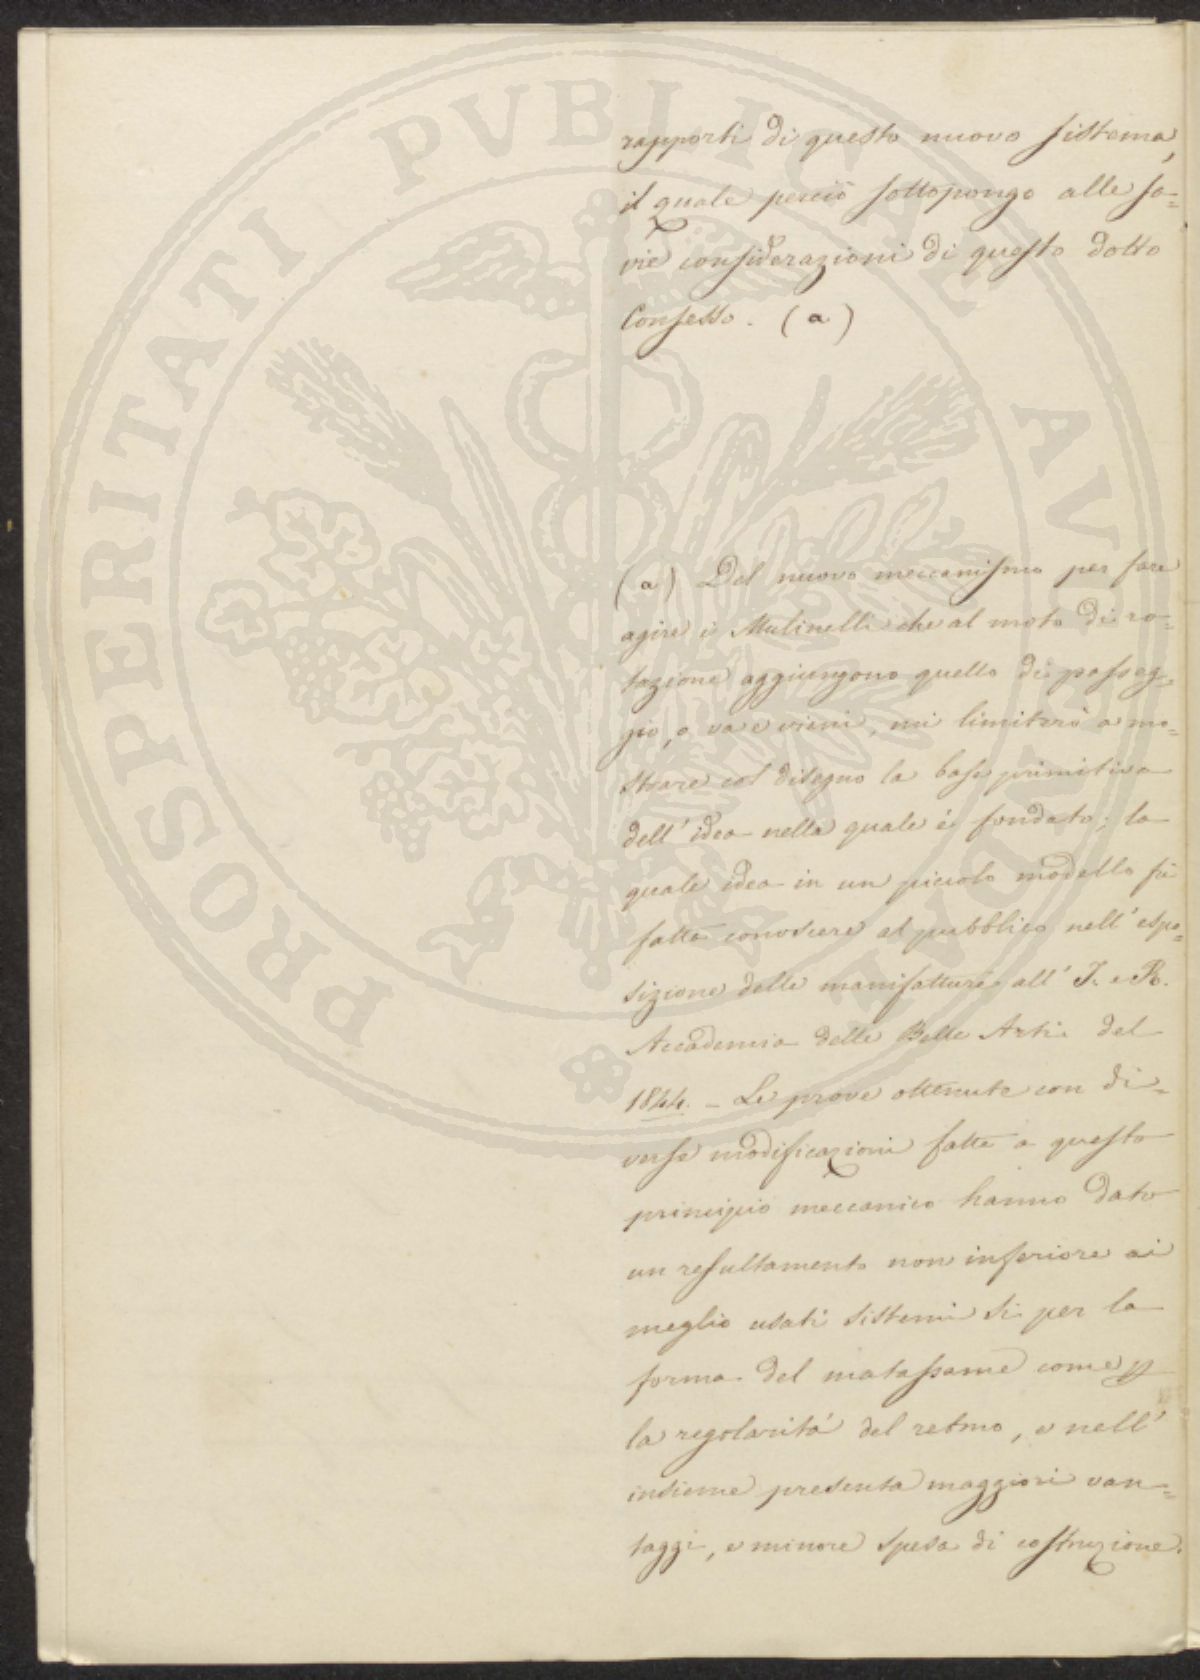 rapporti di questo nuovo sistema,
il quale perciò sottopongo alle sa=
vie considerazioni di questo dotto
Consesso. (a)
(a) Del nuovo meccanismo per fare
agire i Mulinelli che al moto di ro=
tazione aggiungono quello di passeg=
gio, o va e vieni, mi limiterò a mo=
strare col disegno la base primitiva
dell' idea nella quale è fondato; la
quale idea in un piccolo modello fù
fatta conoscere al pubblico nell' espo=
sizione delle manifatture all' I. e R.
Accademia delle Belle Arti del
1844. - Le prove ottenute con di=
verse modificazioni fatte a questo
principio meccanico hanno dato
un resultamento non inferiore ai
meglio usati sistemi sì per la
forma del matassame come p
la regolarità del , e nell'
insieme presenta maggiori van=
taggi, e minore spesa di costruzione.
PROSPERITATI PVBLICAE AVGENDAE